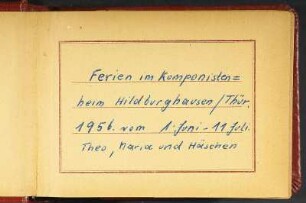 Ferien im Komponisten=
heim Hildburghausen/Thür.
1956. vom 1. Juni - 11. Juli.
Theo, Maria und Häschen